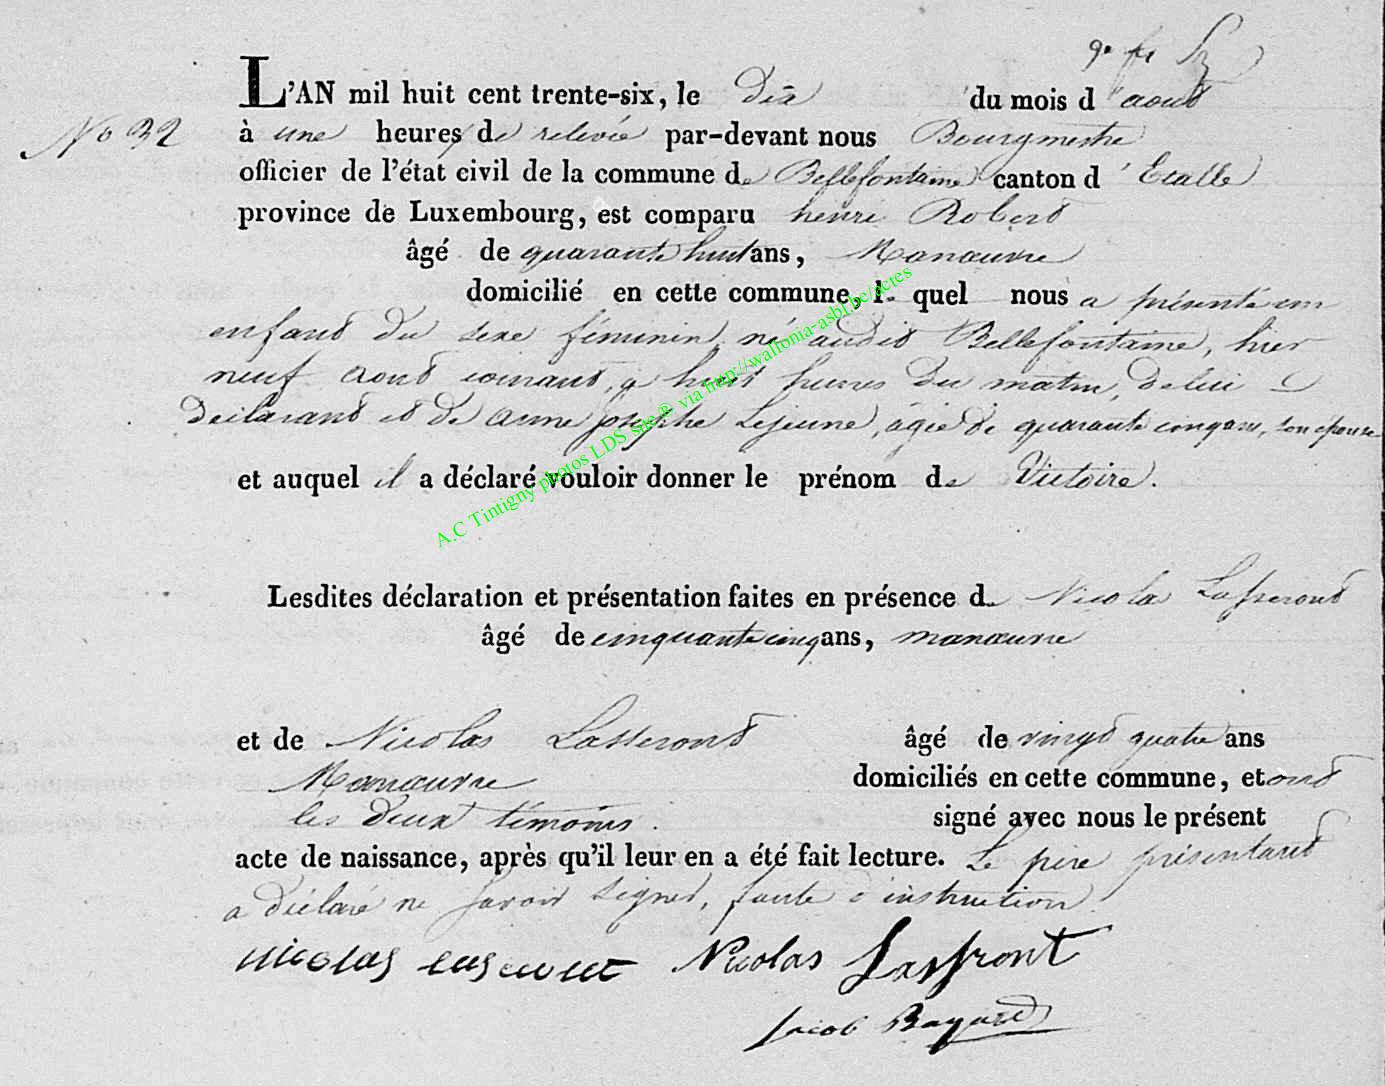 L'AN mil huit cent trente-six, le dix du mois d'aout
No 32 à une heures de relevée par-devant nous Bourgmestre
officier de l'état civil de la commune de Bellefontaine canton d'Etalle
province de Luxembourg, est comparu henri Robert
âgé de quarante huit ans, Manœuvre
domicilié en cette commune, le quel nous a présenté un
enfant du sexe féminin, né audit Bellefontaine, hier
neuf aout courant, à huit heures du matin, de lui
declarant et de anne josephe Lejeune, agée de quarante cinq ans, son épouse
et auquel il a déclaré vouloir donner le prénom de Victoire.
Lesdites déclaration et présentation faites en présence de Nicolas Lasseront
âgé de cinquante cinq ans, manœuvre
et de Nicolas Lasseront âgé de vingt quatre ans
Manœuvre domiciliés en cette commune, et ont
les deux témoins signé avec nous le présent
acte de naissance, après qu'il leur en a été fait lecture. Le père présentant
a déclaré ne savoir signer, faute d'instruction
nicolas Nicolas Lassront
Jacob Bayard
A.C Tintigny photos LDS site® via http://wallonia-asbl.be/actes